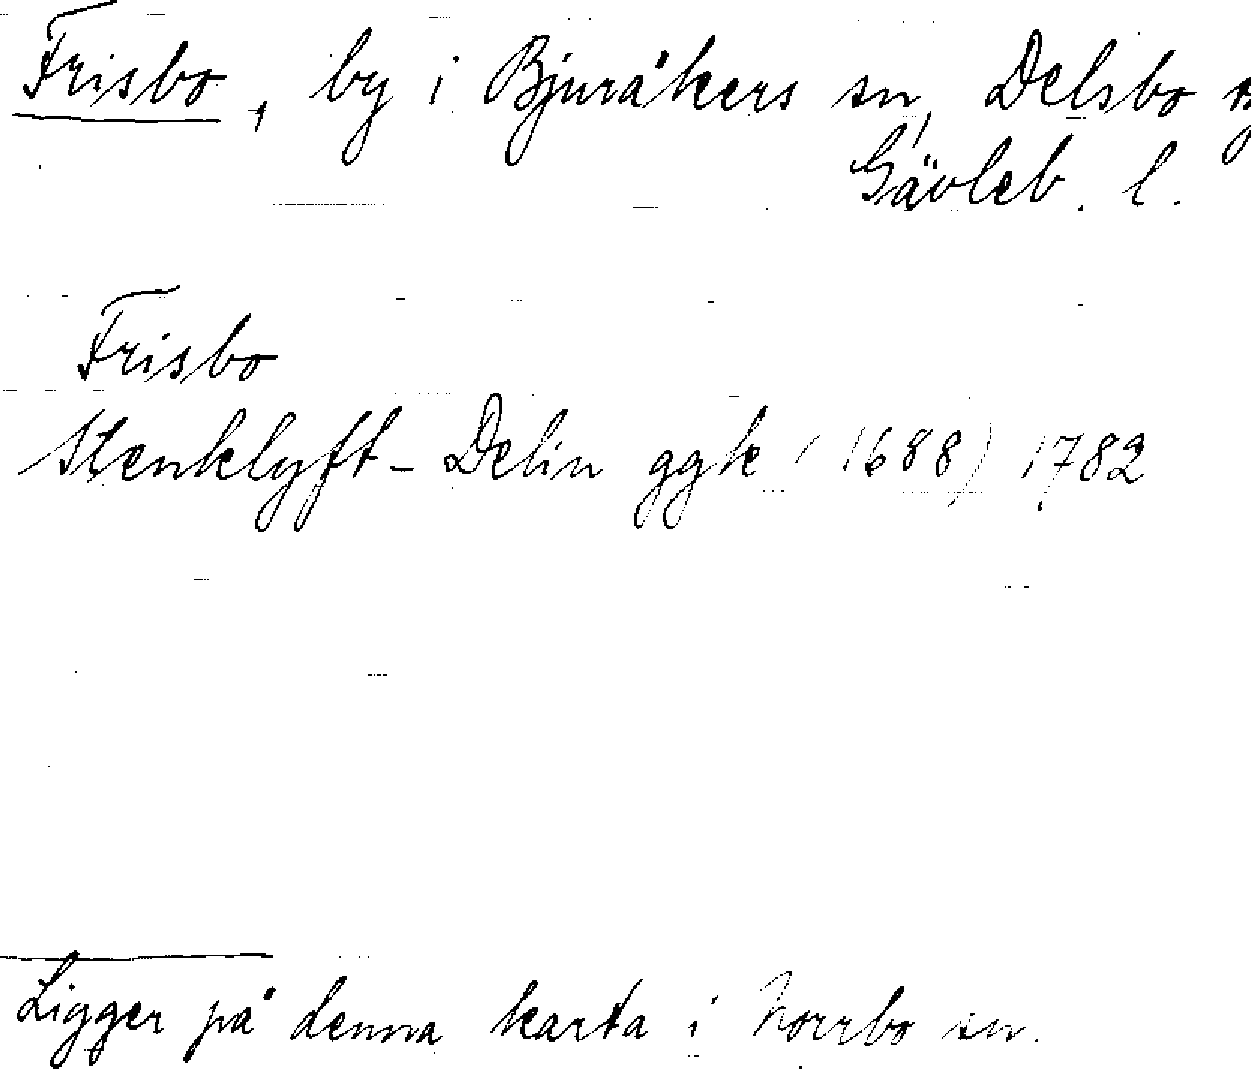 Frisbo, by i Bjuråkers sn, Delsbo
Gävleb. l.
Frisbo
Stenklyft-Delin ggk (1688) 1782
Ligger på denna karta i Norrbo sn.